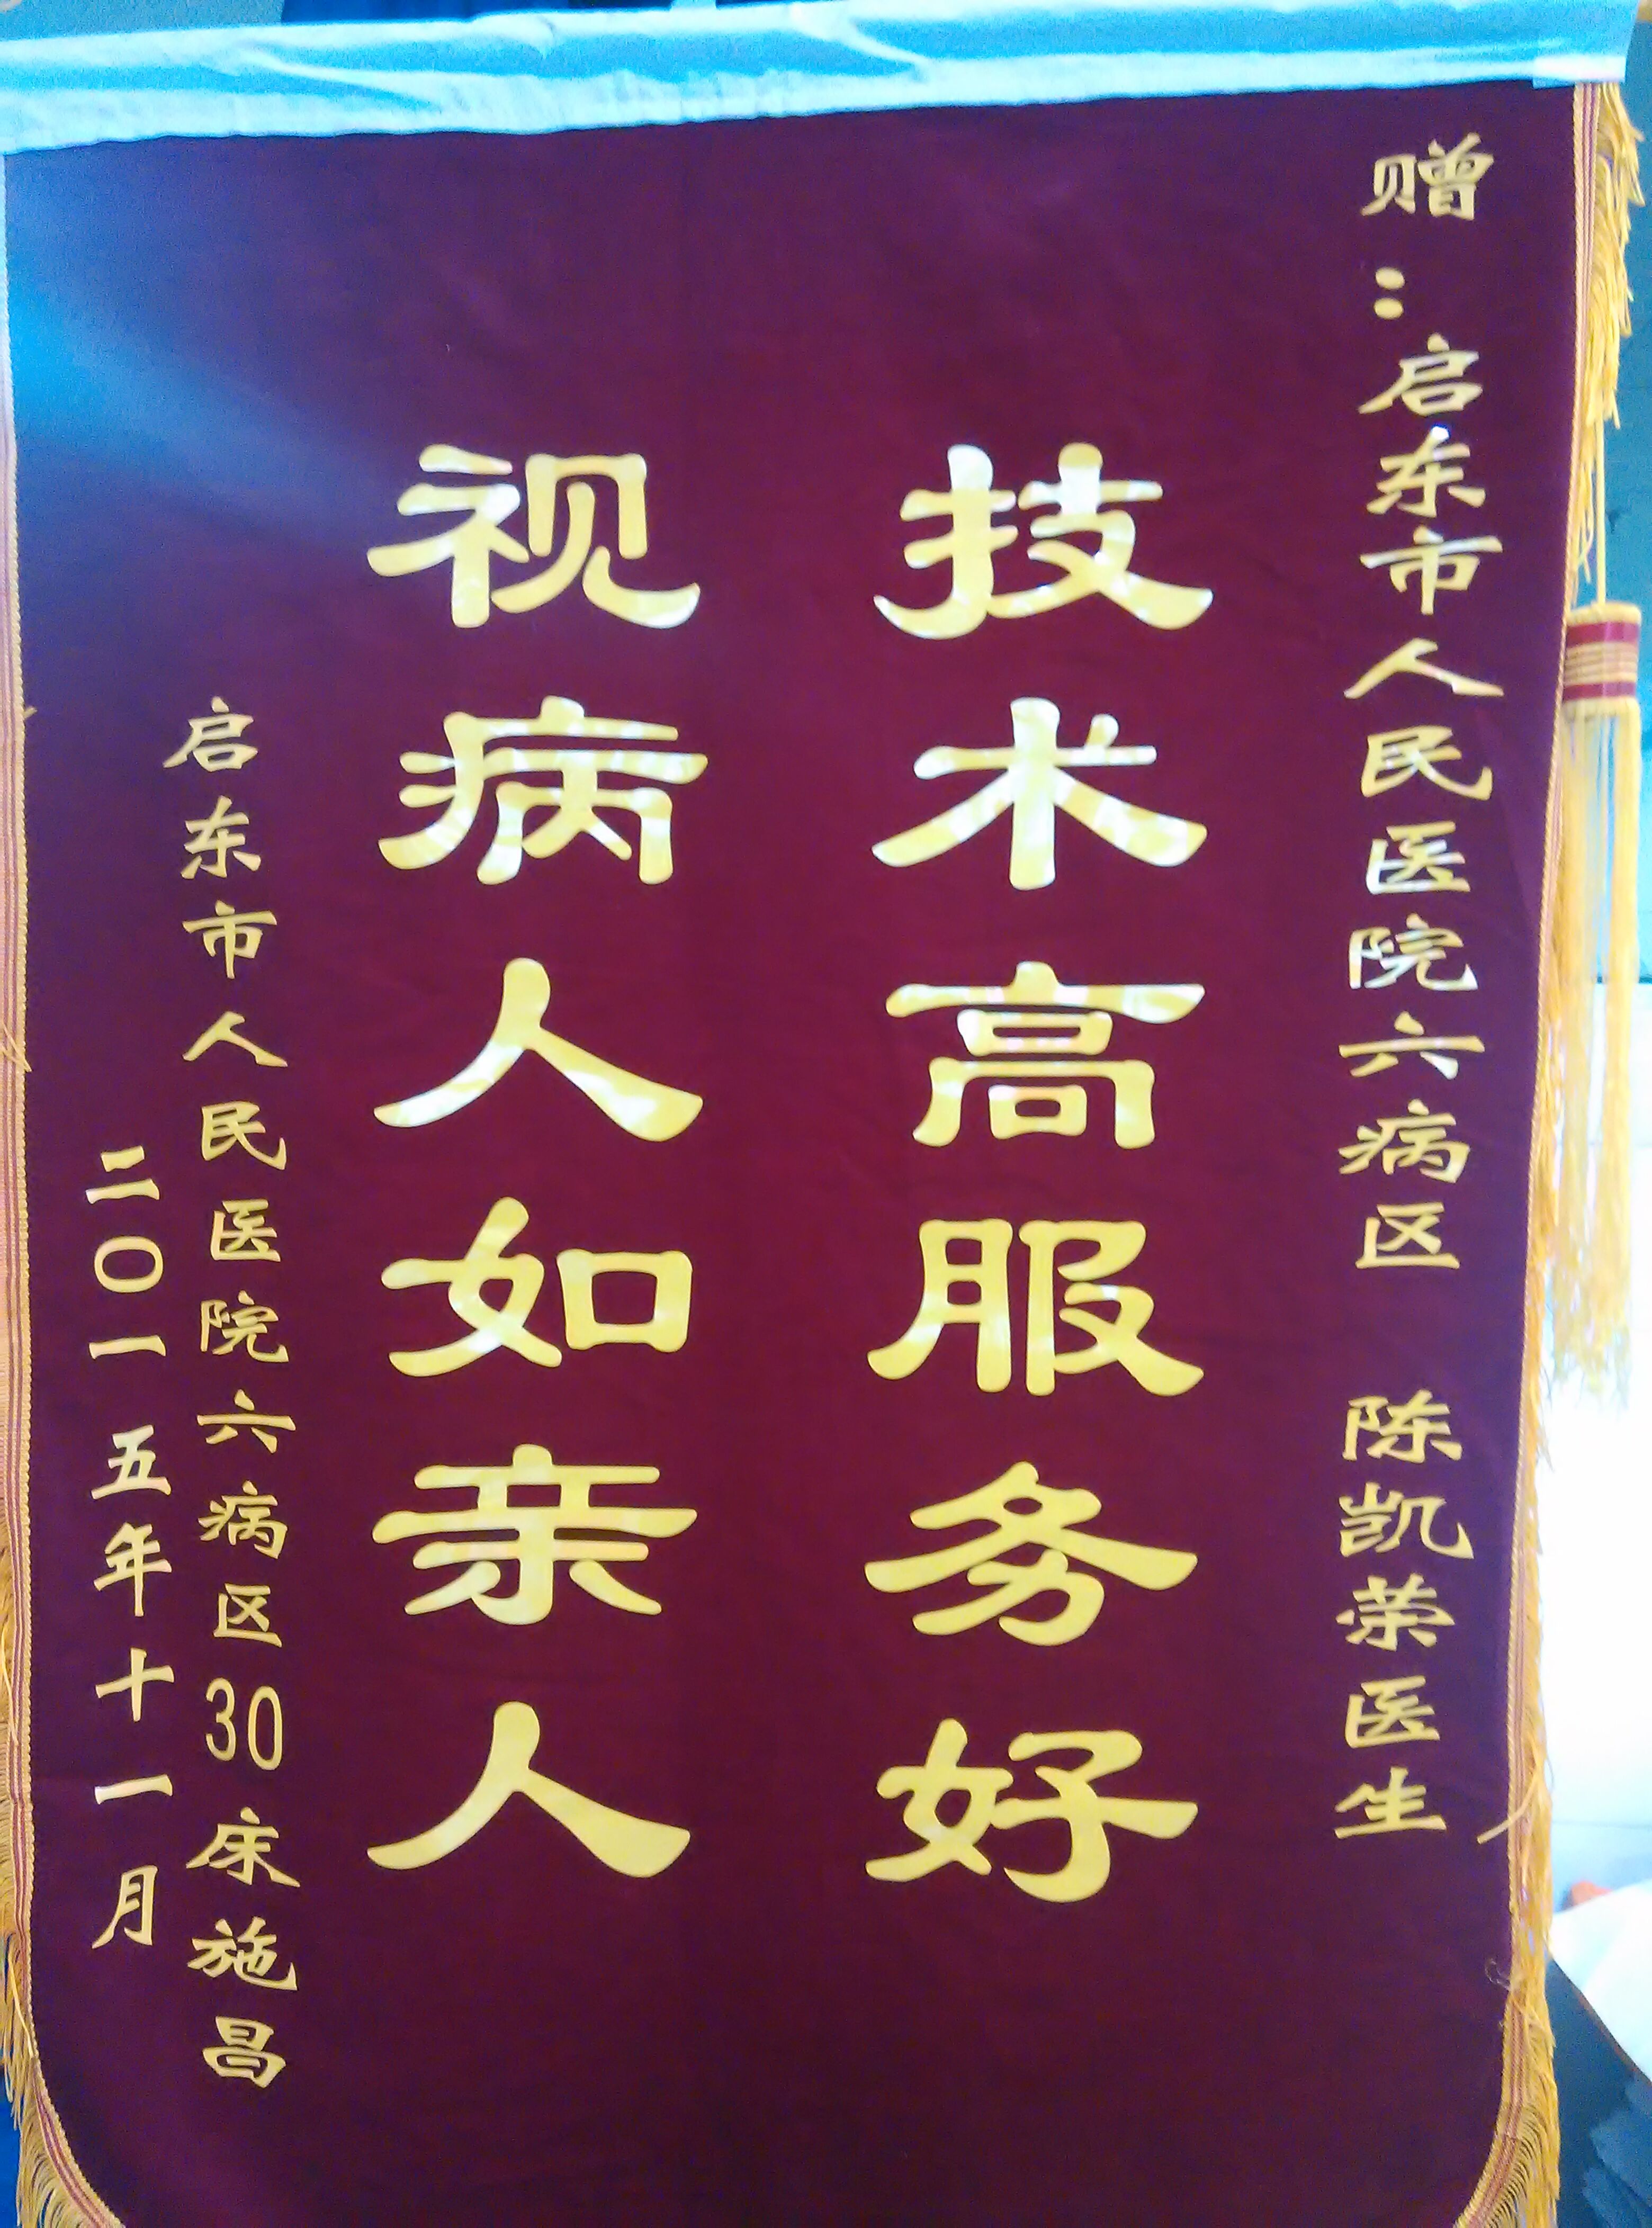 赠：启东市人民医院六病区 陈凯荣医生
技术高服务好
视病人如亲人
启东市人民医院六病区30床施昌
二〇一五年十一月